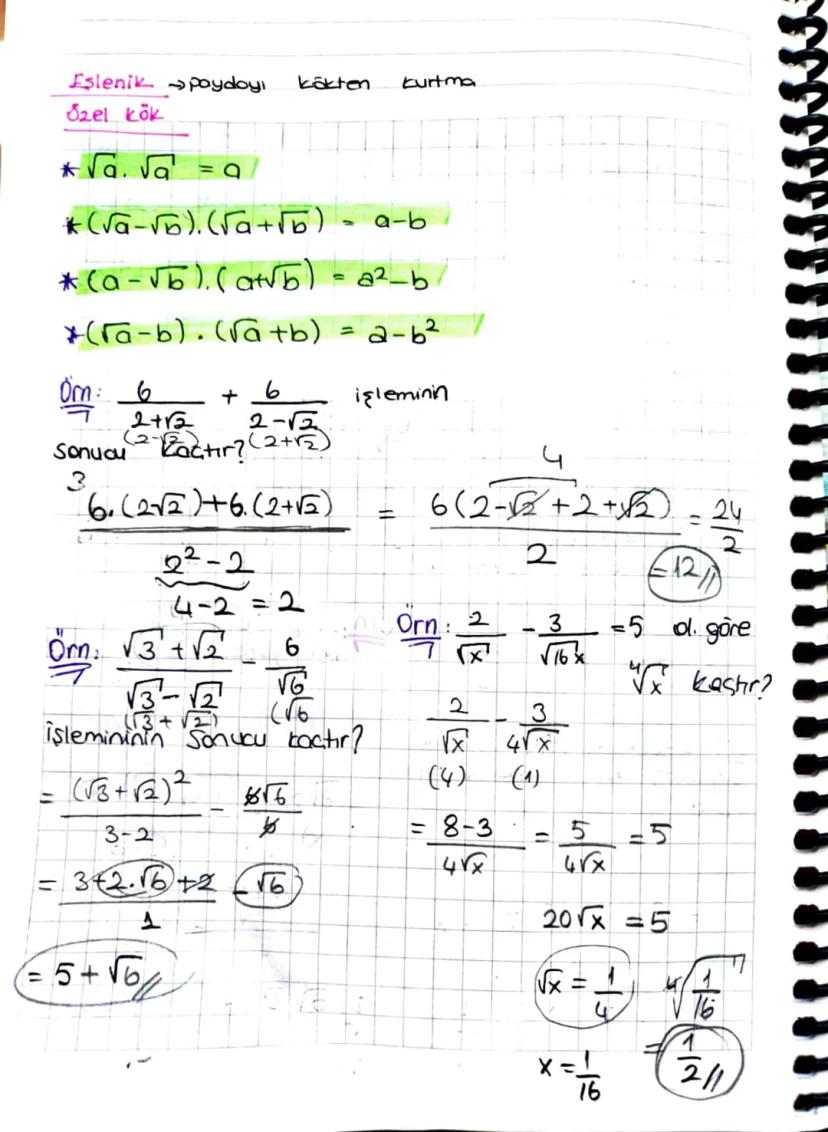 Eşlenik → paydayı kökten kurtma
Özel kök
* √a . √a = a
* (√a-√b).(√a+√b) = a-b
* (a-√b).(a+√b) = a²-b
* (√a-b).(√a+b) = a-b²
Örn: 6/(2+√2) + 6/(2-√2) işleminin
(2-√2) (2+√2)
sonucu kaçtır?
3
(6.(2√2)+6.(2+√2))/(2²-2) = 6(2-√2+2+√2)/2 = 24/2
4
4-2 = 2
= 12//
Örn: (√3+√2)/(√3-√2) - 6/√6
(√3+√2) (√6
işlemininin sonucu kaçtır?
= (√3+√2)²/(3-2) - 6√6/6
= (3+2.√6+2)/1 - √6
= 5+√6//
Örn: 2/√x - 3/√16x = 5 ol. göre
⁴√x kaçtır?
2/√x - 3/4√x
(4) (1)
= (8-3)/4√x = 5/4√x = 5
20√x = 5
√x = 1/4 ⁴√(1/16)
x = 1/16 = 1/2//